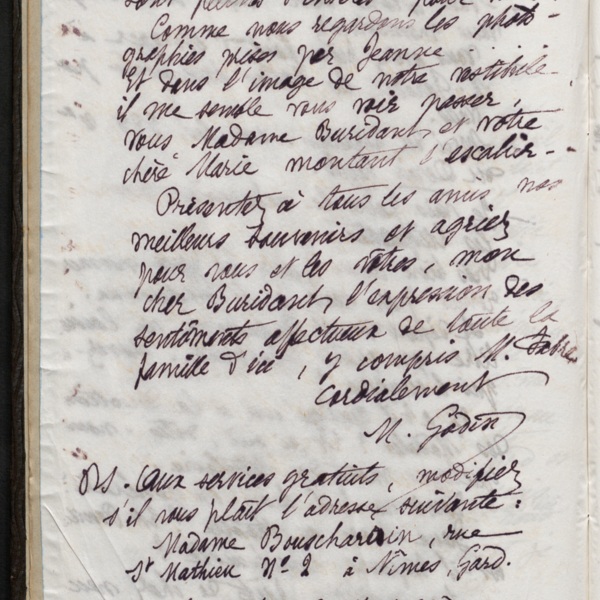 Comme nous regardons les photo-
graphies prises par Jeanne
Et dans l'image de notre vestibule
il me semble vous voir passer,
vous Madame Buridant, et votre
chère Marie montant l'escalier -
Présentez à tous les amis nos
meilleurs souvenirs et agriez
pour vous et les vôtres, mon
cher Buridant, l'expression des
sentiments affectueux de toute la
famille d'ici, y compris M. Fabre
Cordialement
M. Godin
PS. Aux services gratuits, modifier
s'il vous plaît l'adresse suivante :
Madame Bouschardin, rue
St Mathieu Nº 2 à Nîmes, Gard.